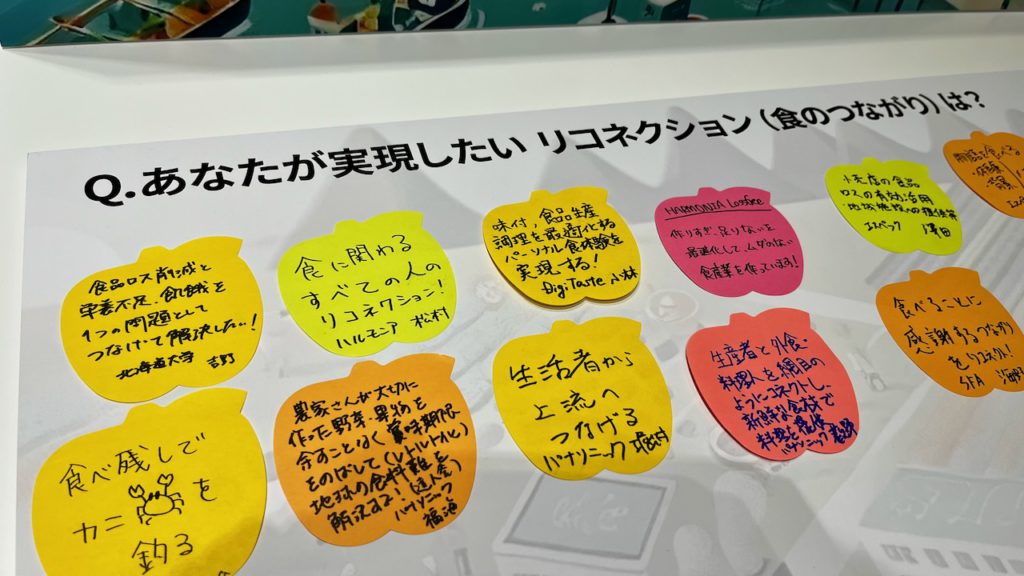 Q.あなたが実現したい リコネクション(食のつながり)は?
食品ロス削減と
栄養不足、飢餓を
1つの問題として
つなげて解決したい!
北海道大学 吉野
食に関わる
すべての人の
リコネクション!
ハルモニア 松村
味付,食品生産
調理を最適化する
パーソナル食体験を
実現する!
DigiTaste 小林
HARMONIA Lossfree
作りすぎ、足りないを
最適化して、ムダのない
食産業を作っていこう!
小売店の食品
ロスの有効活用
エスペック
食べ残しで
カニを
釣る
農家さんが大切に
作った野菜・果物を
余すことなく賞味期限
をのばして(レトルト化)
地球の食料難を
解決する!
パナソニック
福池
生活者から
上流へ
つなげる
パナソニック
生産者と外食・
料理人を網目の
ようにコネクトし、
新鮮な食材で
パナソニック
食べることに
感謝するつながり
をリコネクト!
SFA